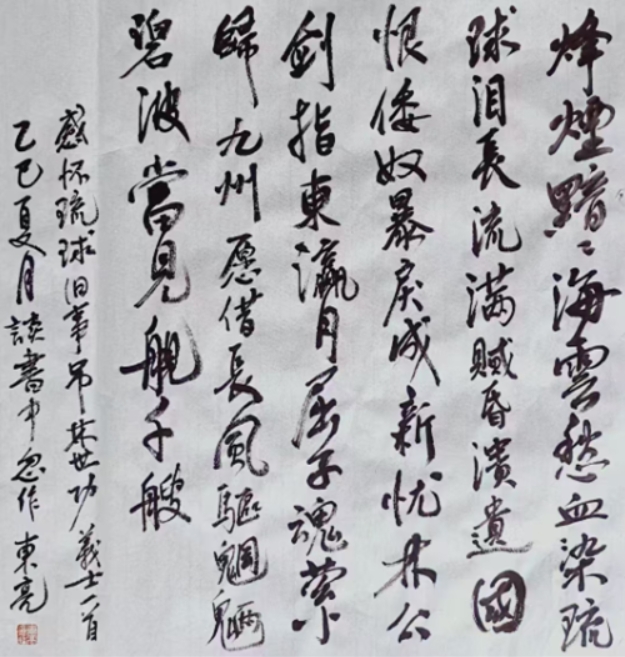 烽煙黯〻海雲愁血染琉
球泪長流满贼昏溃遺國
恨倭奴暴戾成新忧林公
劍指東瀛月屈子魂縈
歸九州愿借長風驅魍魎
碧波當見舰千艘
感怀琉球旧事吊林世功義士一首
乙巳夏月談書中忽作東亮